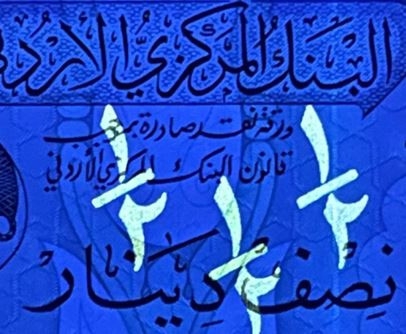 البنك المركزي الأردني
ورقة نقد صادرة بموجب
قانون البنك المركزي الأردني
١/٢ ١/٢ ١/٢
نصف دينار